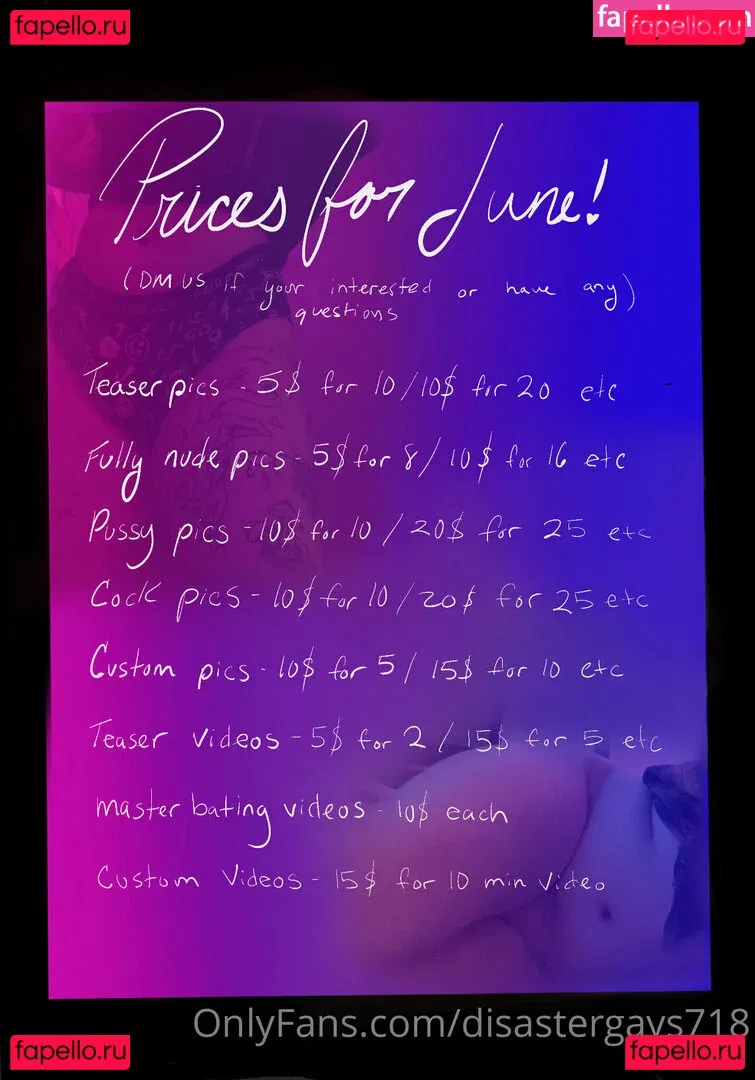 fapello.ru
fapello.ru
Prices for June!
(DM us if your interested or have any)
questions
Teaser pics - 5$ for 10/10$ for 20 etc
Fully nude pics - 5$ for 8/ 10$ for 16 etc
Pussy pics - 10$ for 10 / 20$ for 25 etc
Cock pics - 10$ for 10/20$ for 25 etc
Custom pics - 10$ for 5/ 15$ for 10 etc
Teaser videos - 5$ for 2 / 15$ for 5 etc
master bating videos - 10$ each
Custom Videos - 15$ for 10 min video
OnlyFans.com/disastergays718
fapello.ru
fapello.ru